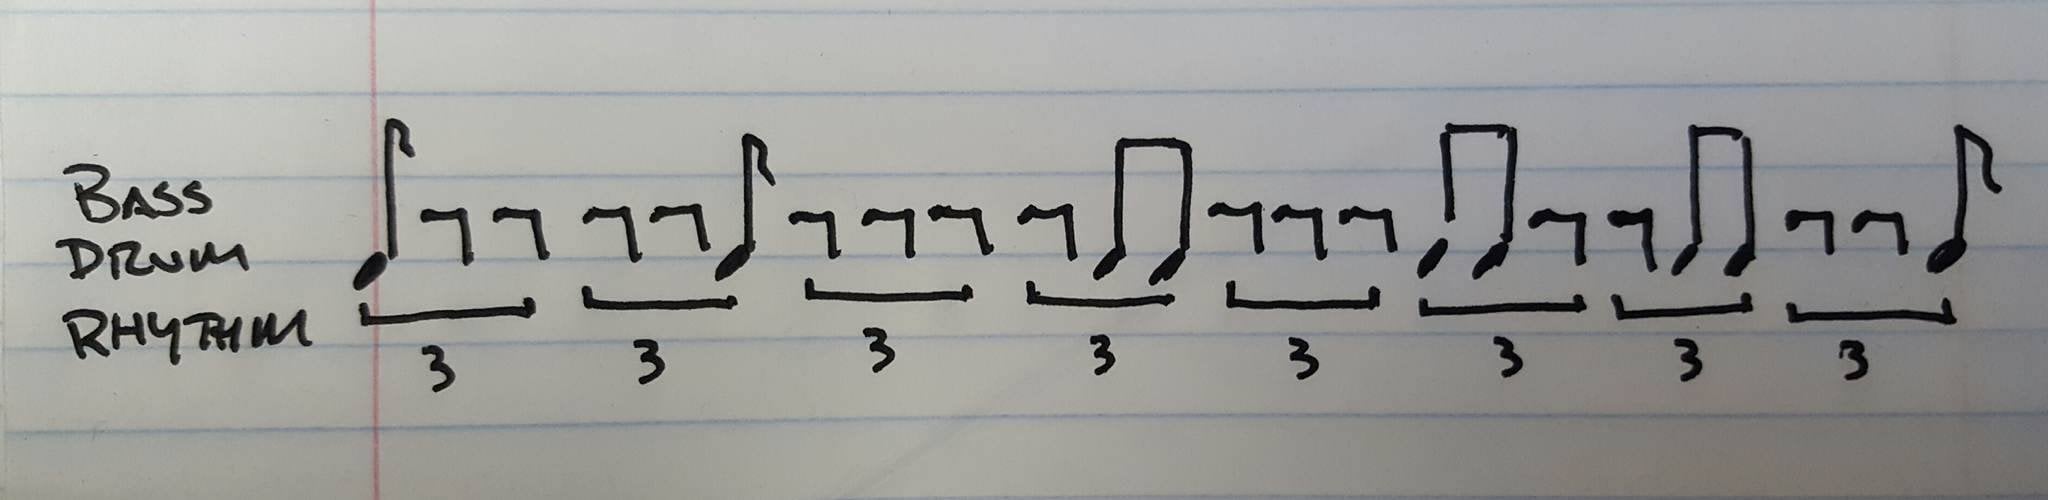 BASS
DRUM
RHYTHM
3 3 3 3 3 3 3 3